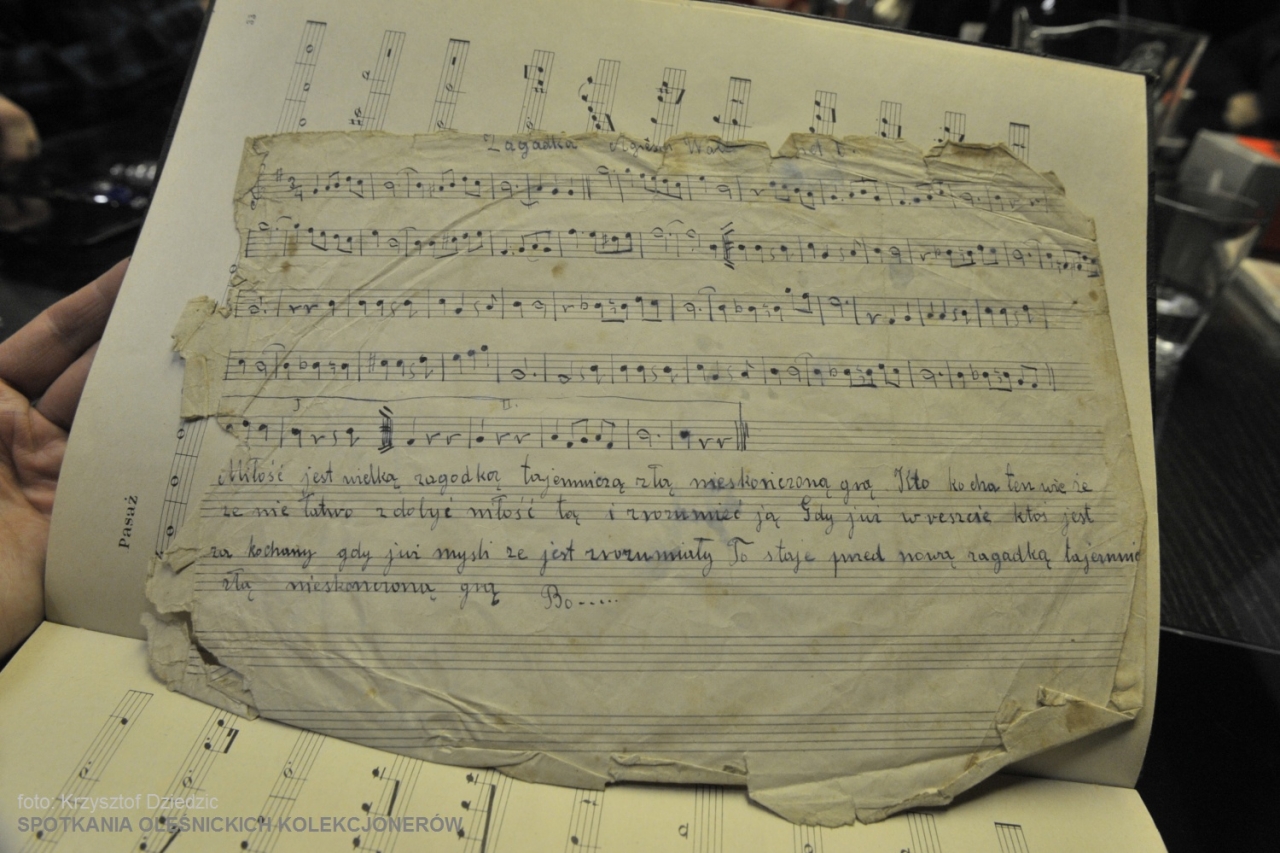 21
Zagadka
I
II.
Miłość jest wielką zagadką tajemniczą złą nieskończoną grą Kto kocha ten wie że
że nie łatwo zdobyć miłość tą i zrozumieć ją Gdy już wreszcie ktoś jest
za kochany gdy już mysli ze jest zrozumiały To staje przed nową zagadką tajemnic
złą nieskonczoną grą Bo-----
Pasaż
foto: Krzysztof Dziedzic
SPOTKANIA OLEŚNICKICH KOLEKCJONERÓW